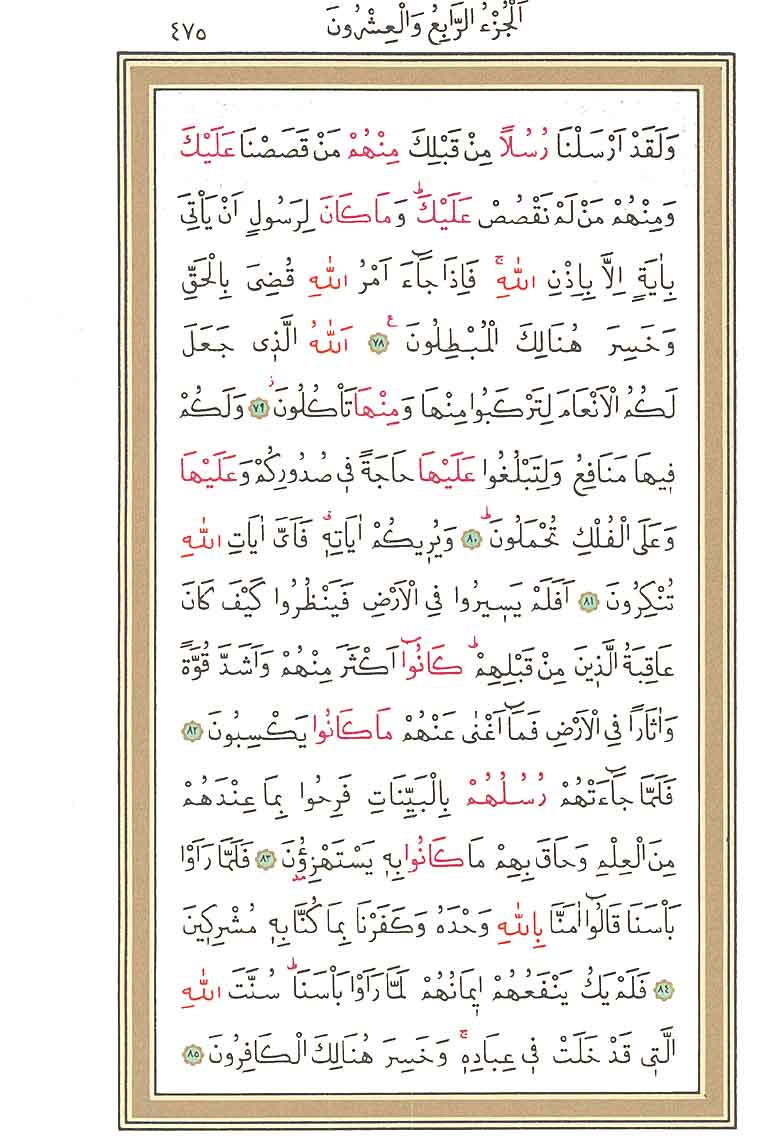 اَلْجُزْءُ الرَّابِعُ وَالْعِشْرُونَ ٤٧٥
وَلَقَدْ اَرْسَلْنَا رُسُلاً مِنْ قَبْلِكَ مِنْهُمْ مَنْ قَصَصْنَا عَلَيْكَ
وَمِنْهُمْ مَنْ لَمْ نَقْصُصْ عَلَيْكَۜ وَمَا كَانَ لِرَسُولٍ اَنْ يَأْتِيَ
بِاٰيَةٍ اِلَّا بِاِذْنِ اللّٰهِۚ فَاِذَا جَٓاءَ اَمْرُ اللّٰهِ قُضِيَ بِالْحَقِّ
وَخَسِرَ هُنَالِكَ الْمُبْطِلُونَ ع ٧٨ اَللّٰهُ الَّذ۪ي جَعَلَ
لَكُمُ الْاَنْعَامَ لِتَرْكَبُوا مِنْهَا وَمِنْهَا تَأْكُلُونَ ز ٧٩ وَلَكُمْ
ف۪يهَا مَنَافِعُ وَلِتَبْلُغُوا عَلَيْهَا حَاجَةً ف۪ي صُدُورِكُمْ وَعَلَيْهَا
وَعَلَى الْفُلْكِ تُحْمَلُونَۜ ٨٠ وَيُر۪يكُمْ اٰيَاتِه۪ۗ فَاَيَّ اٰيَاتِ اللّٰهِ
تُنْكِرُونَ ٨١ اَفَلَمْ يَس۪يرُوا فِي الْاَرْضِ فَيَنْظُرُوا كَيْفَ كَانَ
عَاقِبَةُ الَّذ۪ينَ مِنْ قَبْلِهِمْۜ كَانُٓوا اَكْثَرَ مِنْهُمْ وَاَشَدَّ قُوَّةً
وَاٰثَاراً فِي الْاَرْضِ فَمَٓا اَغْنٰى عَنْهُمْ مَا كَانُوا يَكْسِبُونَ ٨٢
فَلَمَّا جَٓاءَتْهُمْ رُسُلُهُمْ بِالْبَيِّنَاتِ فَرِحُوا بِمَا عِنْدَهُمْ
مِنَ الْعِلْمِ وَحَاقَ بِهِمْ مَا كَانُوا بِه۪ يَسْتَهْزِؤُ۫نَ ٨٣ فَلَمَّا رَاَوْا
بَأْسَنَا قَالُٓوا اٰمَنَّا بِاللّٰهِ وَحْدَهُ وَكَفَرْنَا بِمَا كُنَّا بِه۪ مُشْرِك۪ينَ
٨٤ فَلَمْ يَكُ يَنْفَعُهُمْ ا۪يمَانُهُمْ لَمَّا رَاَوْا بَأْسَنَاۜ سُنَّتَ اللّٰهِ
الَّت۪ي قَدْ خَلَتْ ف۪ي عِبَادِه۪ۚ وَخَسِرَ هُنَالِكَ الْكَافِرُونَ ٨٥